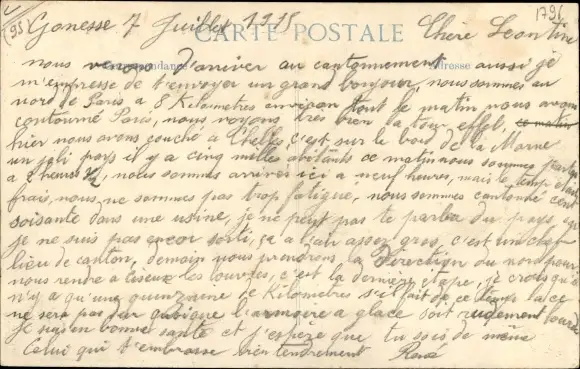 (95 Gonesse 7 Juillet 1915 Chère Leontine
1796
CARTE POSTALE
Correspondance
Adresse
nous venons d'arriver au cantonnement aussi je
m'empresse de t'envoyer un grand bonjour, nous sommes au
nord de Paris a 8 Kilometres environ tout le matin nous avons
contourné Paris, nous voyons très bien la tour effel, ce matin
hier nous avons couché a Chelles, c'est sur le bord de la Marne
un joli pays il y a cinq mille abitants ce matin nous sommes partis
a 2 heures ½, nous sommes arrivés ici a neuf heures, mais le temps était
frais, nous ne sommes pas trop fatigué, nous sommes cantonné cent
soisante dans une usine, je ne peut pas te parler du pays, car
je ne suis pas encor sorti, ça a l'air assez gros, c'est un chef
lieu de canton, demain nous prendrons la Direction du nord pour
nous rendre a les louvres, c'est la dernière étape, je crois qu'il
n'y a qu'une quinzaine de Kilometres s'il fait de ce temps la ce
ne sera pas l'armoire a glace soit rudement lourde
Je suis en bonne santé et j'espère que tu sois de même
Celui qui t'embrasse bien tendrement René